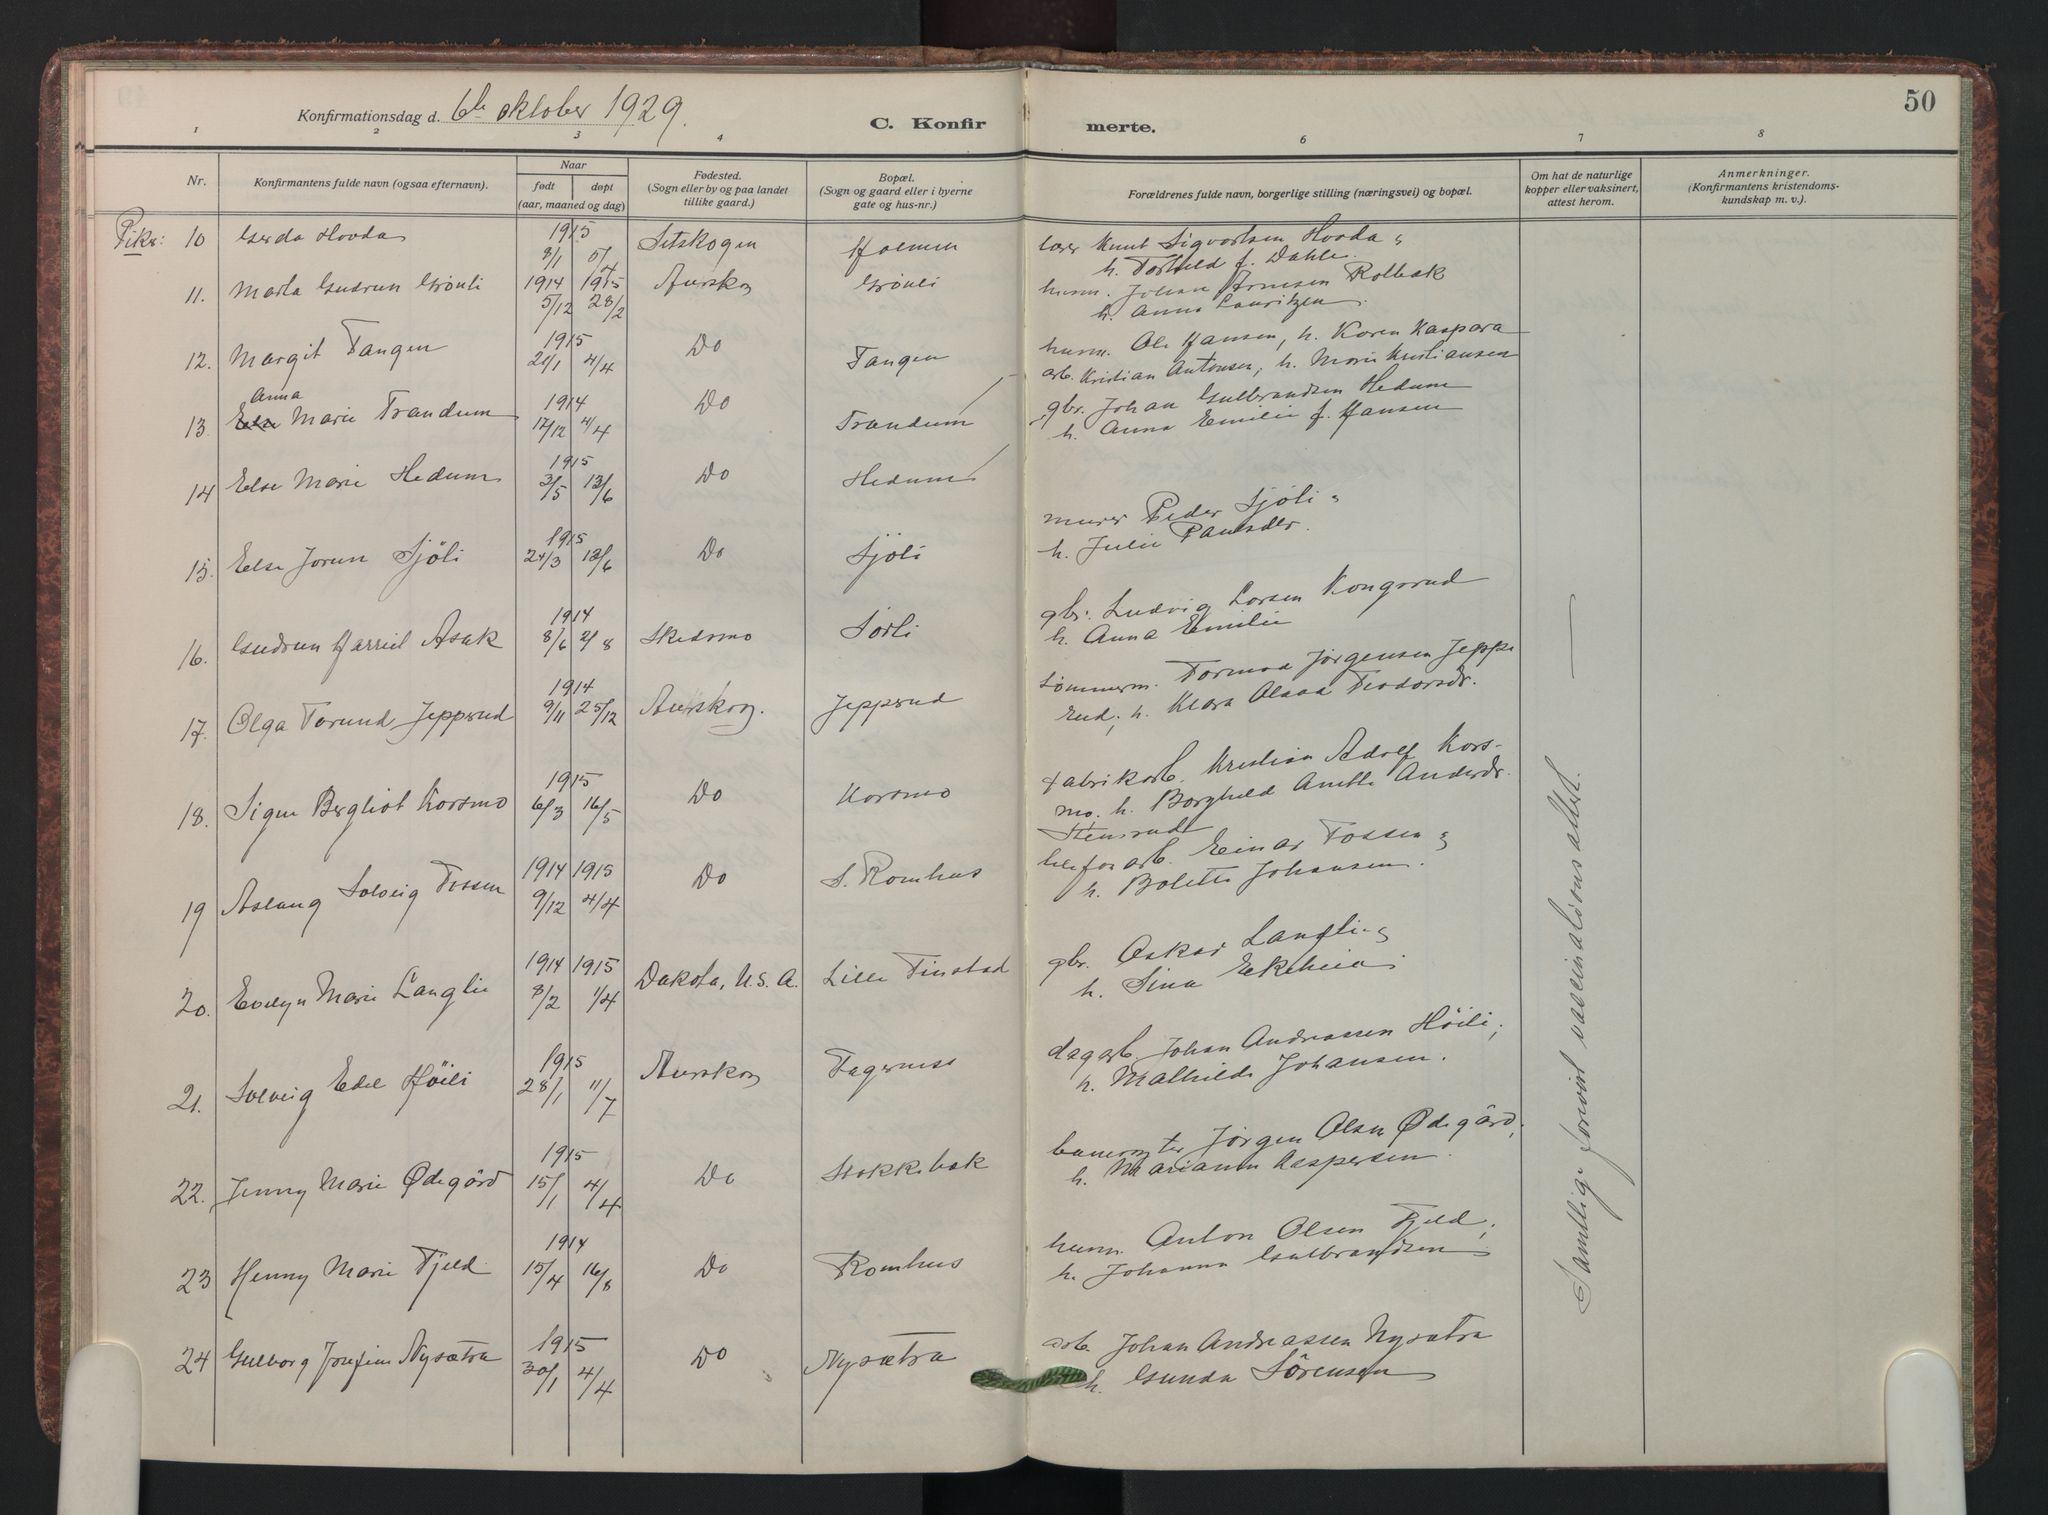 50
Konfirmationsdag d. 6te oktober 1929.
C. Konfirmerte.
1 2 3 4 6 7 8
Nr.
Konfirmantens fulde navn (ogsaa efternavn).
Naar
født døpt
(aar, maaned og dag)
Fødested.
(Sogn eller by og paa landet
tillike gaard.)
Bopæl.
(Sogn og gaard eller i byerne
gate og hus-nr.)
Forældrenes fulde navn, borgerlige stilling (næringsvei) og bopæl.
Om hat de naturlige
kopper eller vaksinert,
attest herom.
Anmerkninger.
(Konfirmantens kristendoms-
kundskap m. v.).
Piker: 10 Gerda Hovda 1915 8/1 Setskogen Holmen lærer Knut Sigvartsen Hovda
h. Torhild f. Dahle.
11. Marta Gudrun Grönli 1914 5/12 1915 28/2 Aurskog Grönli husm. Johan Arnesen Rolbak
h. Anna Lauritzen.
12. Margit Tangen 1915 4/4 Do Tangen husm. Ole Hansen, h. Karen Kaspara
13. Anna Marie Trandum 1914 17/12 4/4 Do Trandum arb. Kristian Antonsen, h. Marie Kristiansen
14 Else Marie Hedum 1915 3/5 13/6 Do Hedum gbr. Johan Gulbrandsen Hedum
h. Anna Emilie f. Hansen
15. Else Jorun Sjöli 1915 24/3 13/6 Do Sjöli murer Peder Sjöli
h. Julie Paulsdtr.
16. Gudrun Harriet Asak 1914 8/6 2/8 Skedsmo Sörli gbr. Ludvig Larsen Kongsrud
h. Anna Emilie
17. Olga Torund Jeppsrud 1914 9/11 25/12 Aurskog. Jeppsrud tömmerm. Tormod Jørgensen Jepps
rud, h. Klara Olava Teodorsdr.
18. Signe Bergliot Korsmo 1915 6/3 16/5 Do Korsmo fabrikarb. Kristian Adolf Kors-
mo. h. Borghild Anette Andersdr.
Stensrud
19 Aslaug Solveig Fossen 1914 9/12 1915 4/4 Do S. Romhus telefonarb. Einar Fossen
h. Bolette Johansen.
20. Evelyn Marie Langlie 1914 8/2 1915 1/4 Dakota, U. S. A. Lille Finstad gbr. Oskar Langli
h. Sina Ekeheia
21. Solveig Edel Höili 1915 28/1 11/7 Aurskog Fagernes dagarb. Johan Andreassen Höili,
h. Mathilde Johansen.
22. Jenny Marie Ødegård 1915 15/1 4/4 Do Stokkebæk banevogter Jörgen Olsen Ødegård,
h. Marianne Kaspersen.
23 Henny Marie Fjeld 1914 15/4 16/8 Do Romhus husm. Anton Olsen Fjeld,
h. Johanna Gulbrandsen
24 Gulborg Josefine Nysætra 1915 30/1 4/4 Do Nysætra arb. Johan Andreassen Nysætra
h. Gunda Sörensen
Samtlige forevist vaccinationsattest.